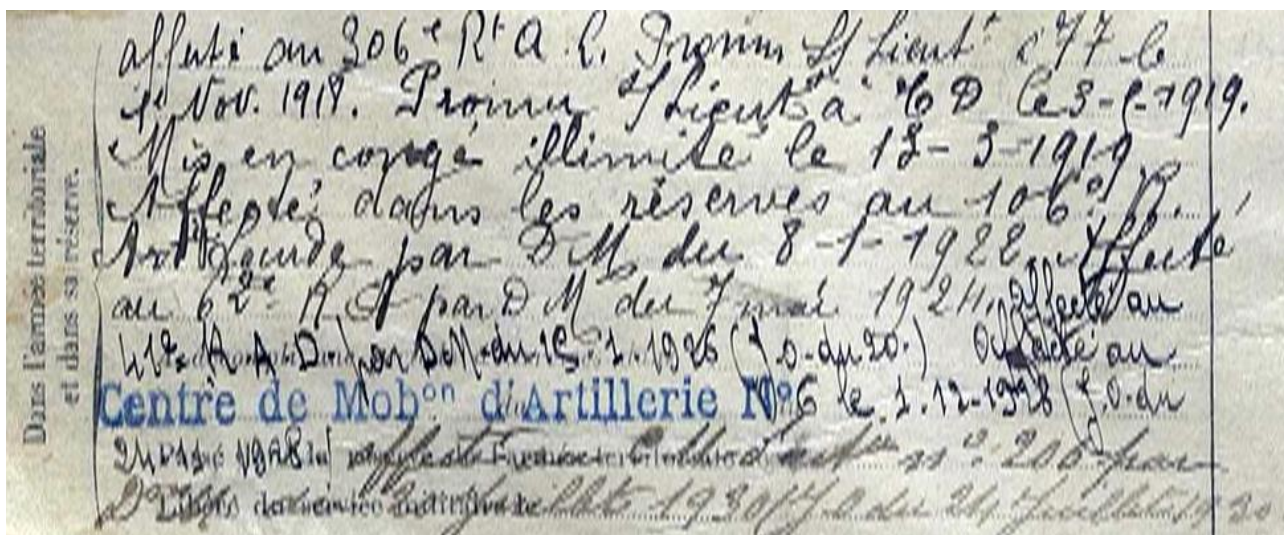 Dans l'armée territoriale
et dans sa réserve.
affecté au 306e Rt A. L. Promu S/Lieutt à TT le
1er Nov. 1918. Promu S/Lieutt à TD le 3-1919.
Mis en congé illimité le 13-3-1919
Affecté dans les réserves au 106e R.
Artie Lourde par DM du 8-1-1922. Affecté
au 62e R A par D M du 7 mai 1924. affecté au
41e R A D par DM du 15.1.1926 (J.O. du 20.) affecté au
Centre de Mobon d'Artillerie No 6 le 1.12-1928 (J.O. du
24-11 1928) affecté no 206 par
D M du juillet 1930 (J O du 24 juillet 1930
Libéré du service